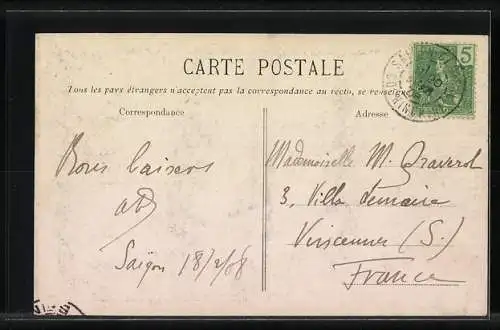 CARTE POSTALE
Tous les pays étrangers n'acceptent pas la correspondance au recto, se renseigner
Correspondance
Adresse
5
Bons baisers
Saïgon 18/2/08
Mademoiselle M.
3, Villa
Vincennes (S.)
France